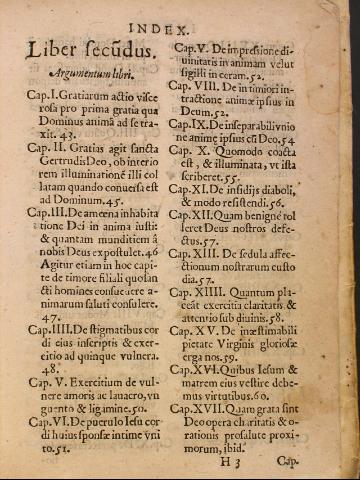 INDEX.
Liber secũdus.
Argumentum libri.
Cap. I. Gratiarum actio visce
rosa pro prima gratia qua
Dominus animã ad se tra-
xit. 43.
Cap. II. Gratias agit sancta
Gertrudis Deo, ob interio
rem illuminationẽ illi col
latam quando conuersa est
ad Dominum. 45.
Cap. III. De amœna inhabita
tione Dei in anima iusti:
& quantam munditiem â
nobis Deus expostulet. 46
Agitur etiam in hoc capi-
te de timore filiali quo san
cti homines consueuere a-
nimarum saluti consulere.
47.
Cap. IIII. De stigmatibus cor
di eius inscriptis & exer-
citio ad quinque vulnera.
48.
Cap. V. Exercitium de vul-
nere amoris ac lauacro, vn
guento & ligamine. 50.
Cap. VI. De puerulo Iesu cor
di huius sponsæ intime vni
to. 51.
Cap. V. De impressione di-
uinitatis in animam velut
sigilli in ceram. 52.
Cap. VIII. De intimiori in-
tractione animæ ipsius in
Deum. 52.
Cap. IX. De inseparabili vnio
ne animę ipsius cũ Deo. 54
Cap. X. Quomodo coacta
est, & illuminata, vt ista
scriberet. 55.
Cap. XI. De insidijs diaboli,
& modo resistendi. 56.
Cap. XII. Quam benignè tol
leret Deus nostros defe-
ctus. 57.
Cap. XIII. De sedula affec-
tionum nostrarum custo
dia. 57.
Cap. XIIII. Quantum pla-
ceat exercitia claritatis &
attentio sub diuinis. 58.
Cap. XV. De inæstimabili
pietate Virginis gloriosæ
erga nos. 59.
Cap. XVI. Quibus Iesum &
matrem eius vestire debe-
mus virtutibus. 60.
Cap. XVII. Quam grata sint
Deo opera charitatis & o-
rationis prosalute proxi-
morum, ibid.
H 3 Cap.